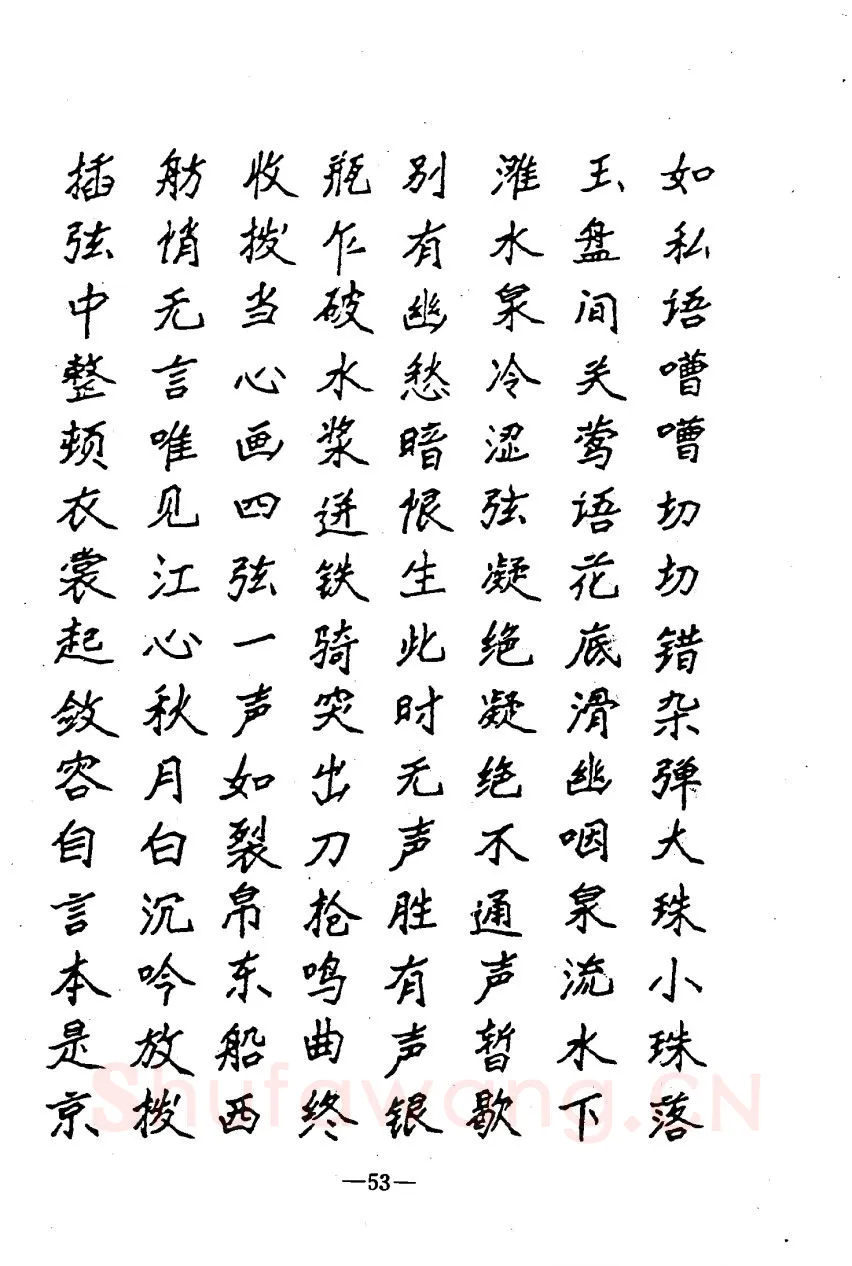 如私语嘈嘈切切错杂弹大珠小珠落
玉盘间关莺语花底滑幽咽泉流水下
滩水泉冷涩弦凝绝凝绝不通声暂歇
别有幽愁暗恨生此时无声胜有声银
瓶乍破水浆迸铁骑突出刀枪鸣曲终
收拨当心画四弦一声如裂帛东船西
舫悄无言唯见江心秋月白沉吟放拨
插弦中整顿衣裳起敛容自言本是京
—53—
Shufawang.CN